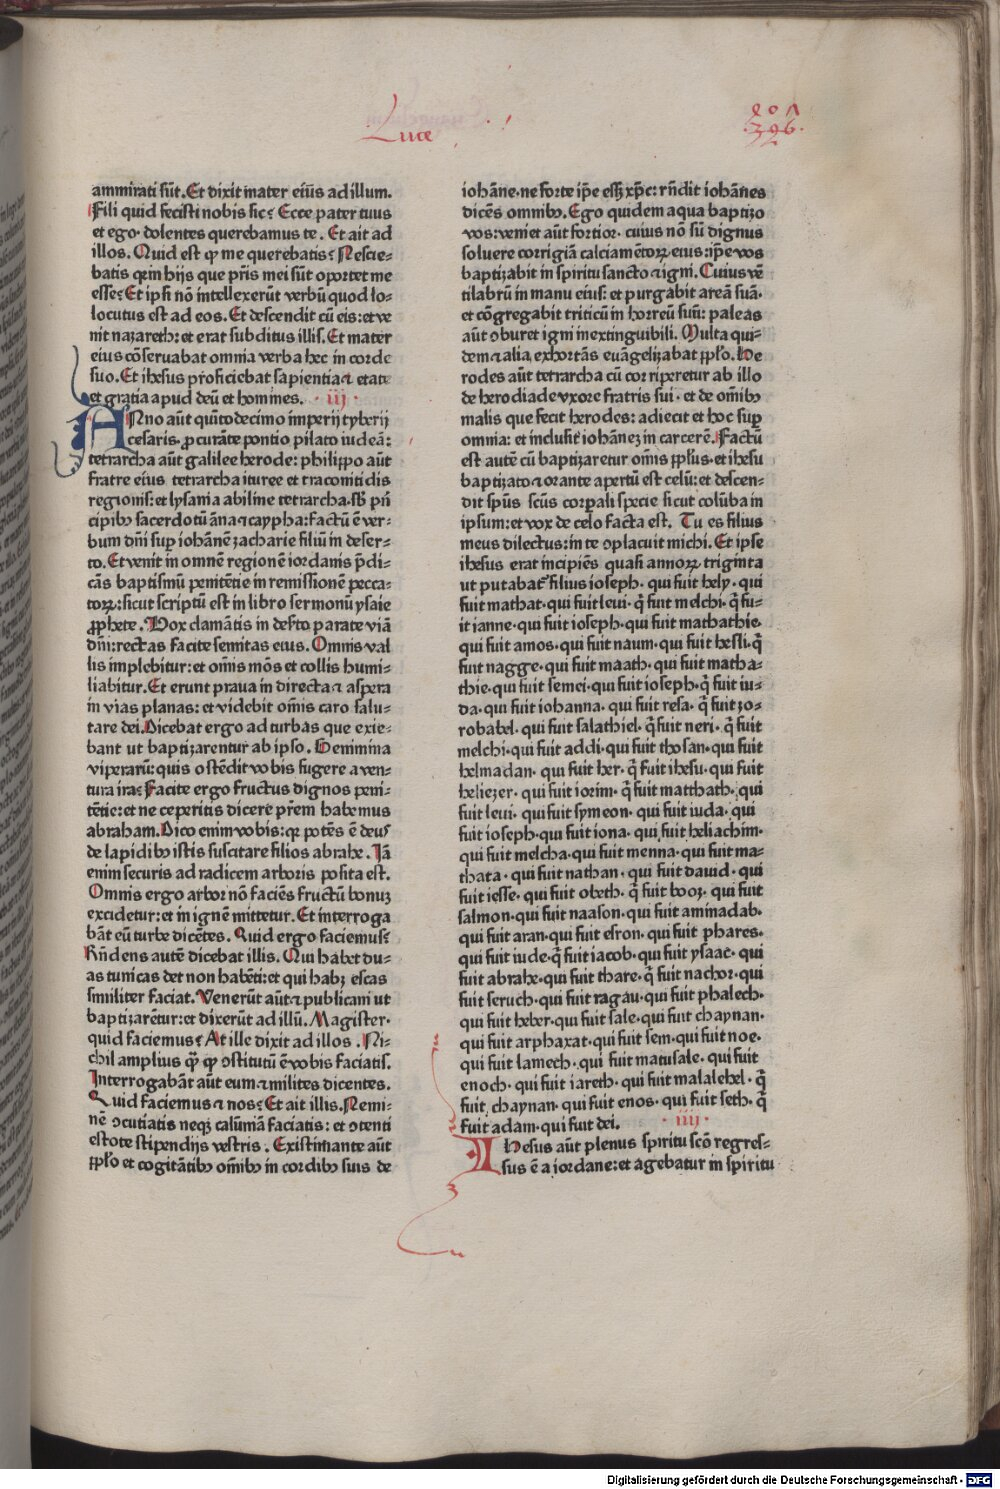 Luce
401
396
ammirati sūt. Et dixit mater eiūs ad illum.
Fili quid fecisti nobis sic? Ecce pater tuus
et ego· dolentes querebamus te. Et ait ad
illos. Quid est ꝙ me querebatis? Nescie-
batis qꝛ in hijs que pr̄is mei sūt oportet me
esse? Et ipsi nō intellexerūt verbū quod lo-
locutus est ad eos. Et descendit cū eis: et ve
nit nazareth: et erat subditus illis. Et mater
eius cōseruabat omnia verba hec in corde
suo. Et ihesus proficiebat sapientia ⁊ etate
et gratia apud deū et homines. · iij ·
ANno aūt quītodecimo imperij tyberij
cesaris· ꝓcurāte pontio pilato iudeā:
tetrarcha aūt galilee herode: philippo aūt
fratre eius tetrarcha ituree et traconitidis
regionis: et lysania abiline tetrarcha. sb̄ pn̄
cipibꝫ sacerdotū āna ⁊ caypha: factū ē ver-
bum dn̄i suꝑ iohānē zacharie filiū in deser-
to. Et venit in omnē regionē iordanis p̄di-
cās baptismū penitētie in remissionē pecca-
toꝝ: sicut scriptū est in libro sermonū ysaie
ꝓphete. Vox clamātis in deẜto parate viā
dn̄i: rectas facite semitas eius. Omnis val
lis implebitur: et om̄is mōs et collis humi-
liabitur. Et erunt praua in directa ⁊ aspera
in vias planas: et videbit om̄is caro salu-
tare dei. Dicebat ergo ad turbas que exie-
bant ut baptizarentur ab ipso. Genimina
viperarū: quis ostēdit vobis fugere a ven-
tura ira? Facite ergo fructus dignos peni-
tētie: et ne ceperitis dicere pr̄em habemus
abraham. Dico enim vobis: qꝛ potēs ē deus
de lapidibꝫ istis suscitare filios abrahe. Iā
enim securis ad radicem arboris posita est.
Omnis ergo arbor nō faciēs fructū bonuꝫ
excidetur: et in ignē mittetur. Et interroga
bāt eū turbe dicētes. Quid ergo faciemus?
Rn̄dens autē dicebat illis. Qui habet du-
as tunicas det non habēti: et qui habꝫ escas
similiter faciat. Venerūt aūt ⁊ publicani ut
baptizarētur: et dixerūt ad illū. Magister·
quid faciemus? At ille dixit ad illos. Ni-
chil amplius ꝙ̄ ꝙ ɔstitutū ē vobis faciatis.
Interrogabāt aūt eum ⁊ milites dicentes.
Quid faciemus ⁊ nos? Et ait illis. Nemi-
nē ɔcutiatis neqꝫ calūmā faciatis: et ɔtenti
estote stipendijs vestris. Existimante aūt
pp̄lo et cogitātibꝫ om̄ibꝫ in cordibꝫ suis de
iohāne· ne forte ip̄e ess̄ xp̄c: rn̄dit iohānes
dicēs omnibꝫ. Ego quidem aqua baptizo
vos: veniet aūt fortior· cuius nō sū dignus
soluere corrigiā calciamētoꝝ eius: ip̄e vos
baptizabit in spiritu sancto ⁊ igni. Cuius vē
tilabrū in manu eius: et purgabit areā suā·
et cōgregabit triticū in horreū suū: paleas
aūt ɔburet igni inextinguibili. Multa qui-
dem ⁊ alia exhortās euāgelizabat pp̄lo. He
rodes aūt tetrarcha cū corriperetur ab illo
de herodiade vxore fratris sui· et de om̄ibꝫ
malis que fecit herodes: adiecit et hoc suꝑ
omnia: et inclusit iohāneꝫ in carcerē. Factū
est autē cū baptizaretur om̄is pp̄lus· et ihesu
baptizato ⁊ orante apertū est celū: et descen-
dit sp̄us sc̄us corꝑali specie sicut colūba in
ipsum: et vox de celo facta est. Tu es filius
meus dilectus: in te ɔplacuit michi. Et ipse
ihesus erat incipiēs quasi annoꝝ triginta
ut putabat̄ filius ioseph· qui fuit hely· qui
fuit mathat· qui fuit leui· q̄ fuit melchi· q̄ fu-
it ianne· qui fuit ioseph· qui fuit mathathie·
qui fuit amos· qui fuit naum· qui fuit hesli· q̄
fuit nagge· qui fuit maath· qui fuit matha-
thie· qui fuit semei· qui fuit ioseph· q̄ fuit iu-
da· qui fuit iohanna· qui fuit resa· q̄ fuit zo-
robabel· qui fuit salathiel· q̄ fuit neri· q̄ fuit
melchi· qui fuit addi· qui fuit thosan· qui fuit
helmadan· qui fuit her· q̄ fuit ihesu· qui fuit
heliezer· qui fuit iorim· q̄ fuit matthath· qui
fuit leui· qui fuit symeon· qui fuit iuda· qui
fuit ioseph· qui fuit iona· qui fuit heliachim·
qui fuit melcha· qui fuit menna· qui fuit ma-
thata· qui fuit nathan· qui fuit dauid· qui
fuit iesse· qui fuit obeth· q̄ fuit booz· qui fuit
salmon· qui fuit naason· qui fuit aminadab·
qui fuit aran· qui fuit esron· qui fuit phares·
qui fuit iude· q̄ fuit iacob· qui fuit ysaac· qui
fuit abrahe· qui fuit thare· q̄ fuit nachor· qui
fuit seruch· qui fuit ragau· qui fuit phalech·
qui fuit heber· qui fuit sale· qui fuit chaynan·
qui fuit arphaxat· qui fuit sem· qui fuit noe·
qui fuit lamech· qui fuit matusale· qui fuit
enoch· qui fuit iareth· qui fuit malalehel· q̄
fuit chaynan· qui fuit enos· qui fuit seth· q̄
fuit adam· qui fuit dei. · iiij ·
IHesus aūt plenus spiritu scō regres-
sus ē a iordane: et agebatur in spiritu
Digitalisierung gefördert durch die Deutsche Forschungsgemeinschaft - DFG